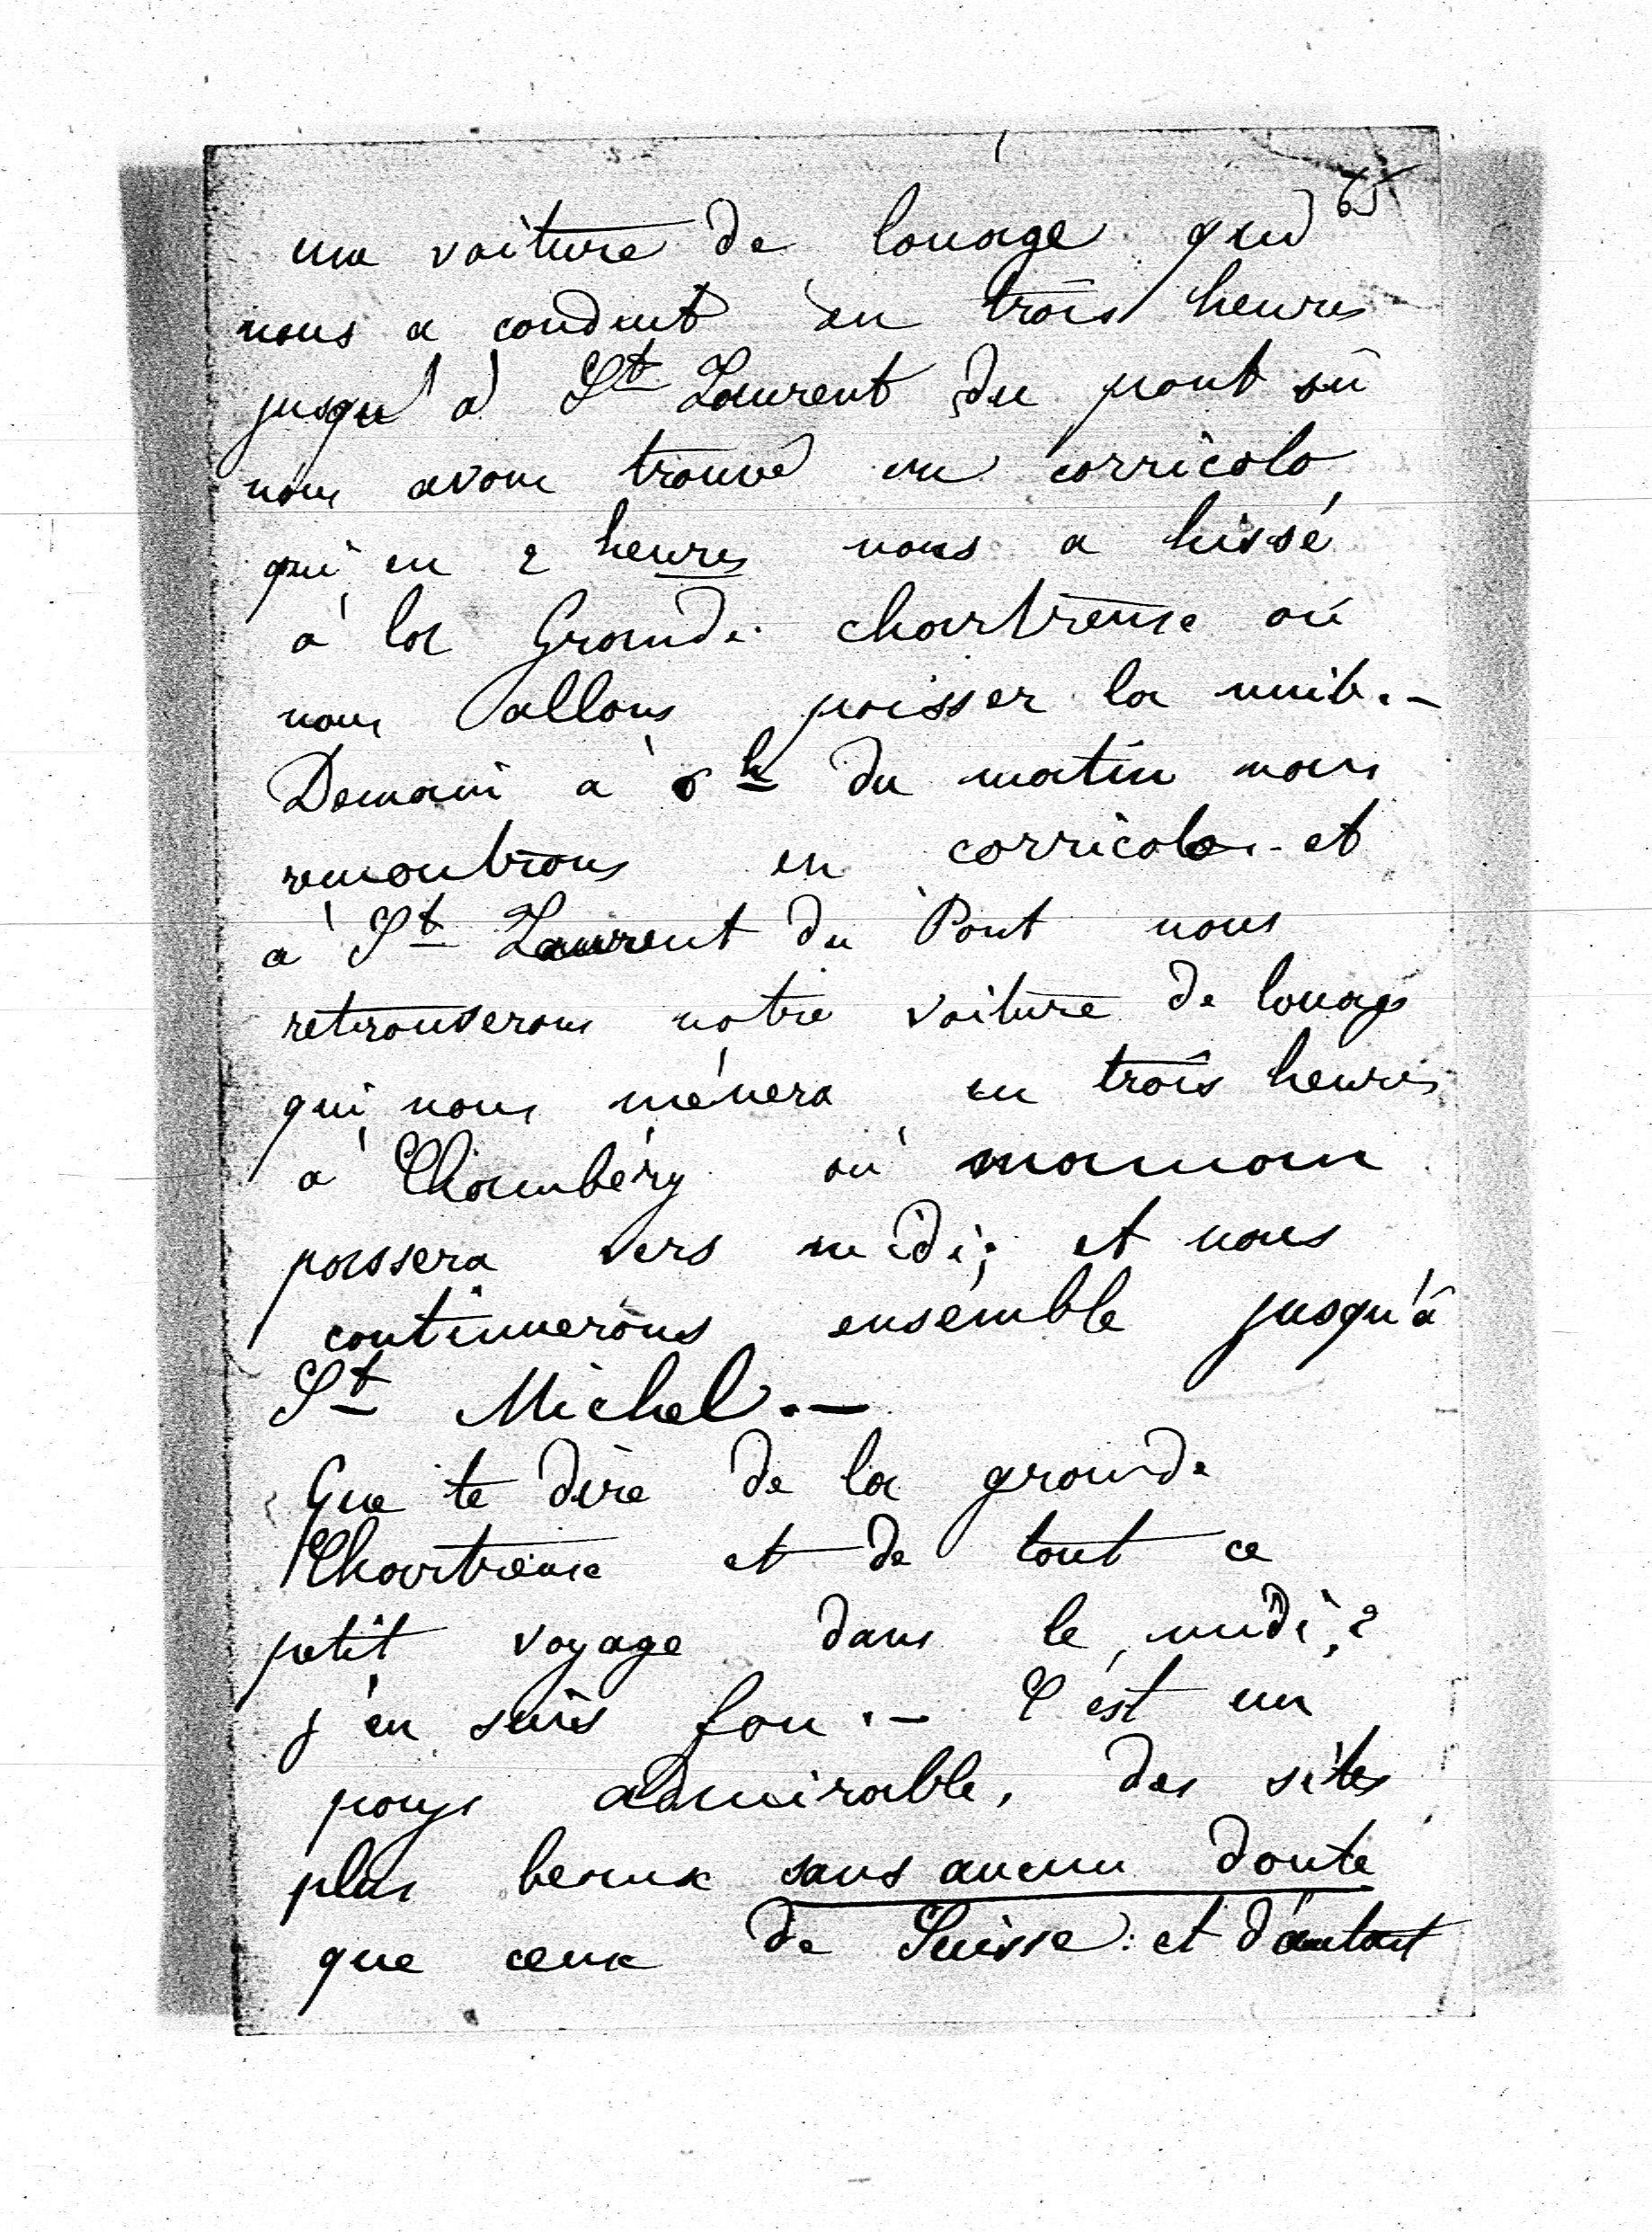 65
une voiture de louage qui
nous a conduit en trois heures
jusqu'à St Laurent du pont où
nous avons trouvé un corricolo
qui en 2 heures nous a hissé
à la Grande chartreuse où
nous allons passer la nuit. —
Demain à 6h du matin nous
remontrons en corricolo et
à St Laurent du Pont nous
retrouverons notre voiture de louage
qui nous mènera en trois heures
à Chambéry où maman
passera vers midi; et nous
continuerons ensemble jusqu'à
St Michel. —
Que te dire de la grande
Chartreuse et de tout ce
petit voyage dans le midi?
j'en suis fou. — C'est un
pays admirable, des sites
plus beaux sans aucun doute
que ceux de Suisse: et d'autant